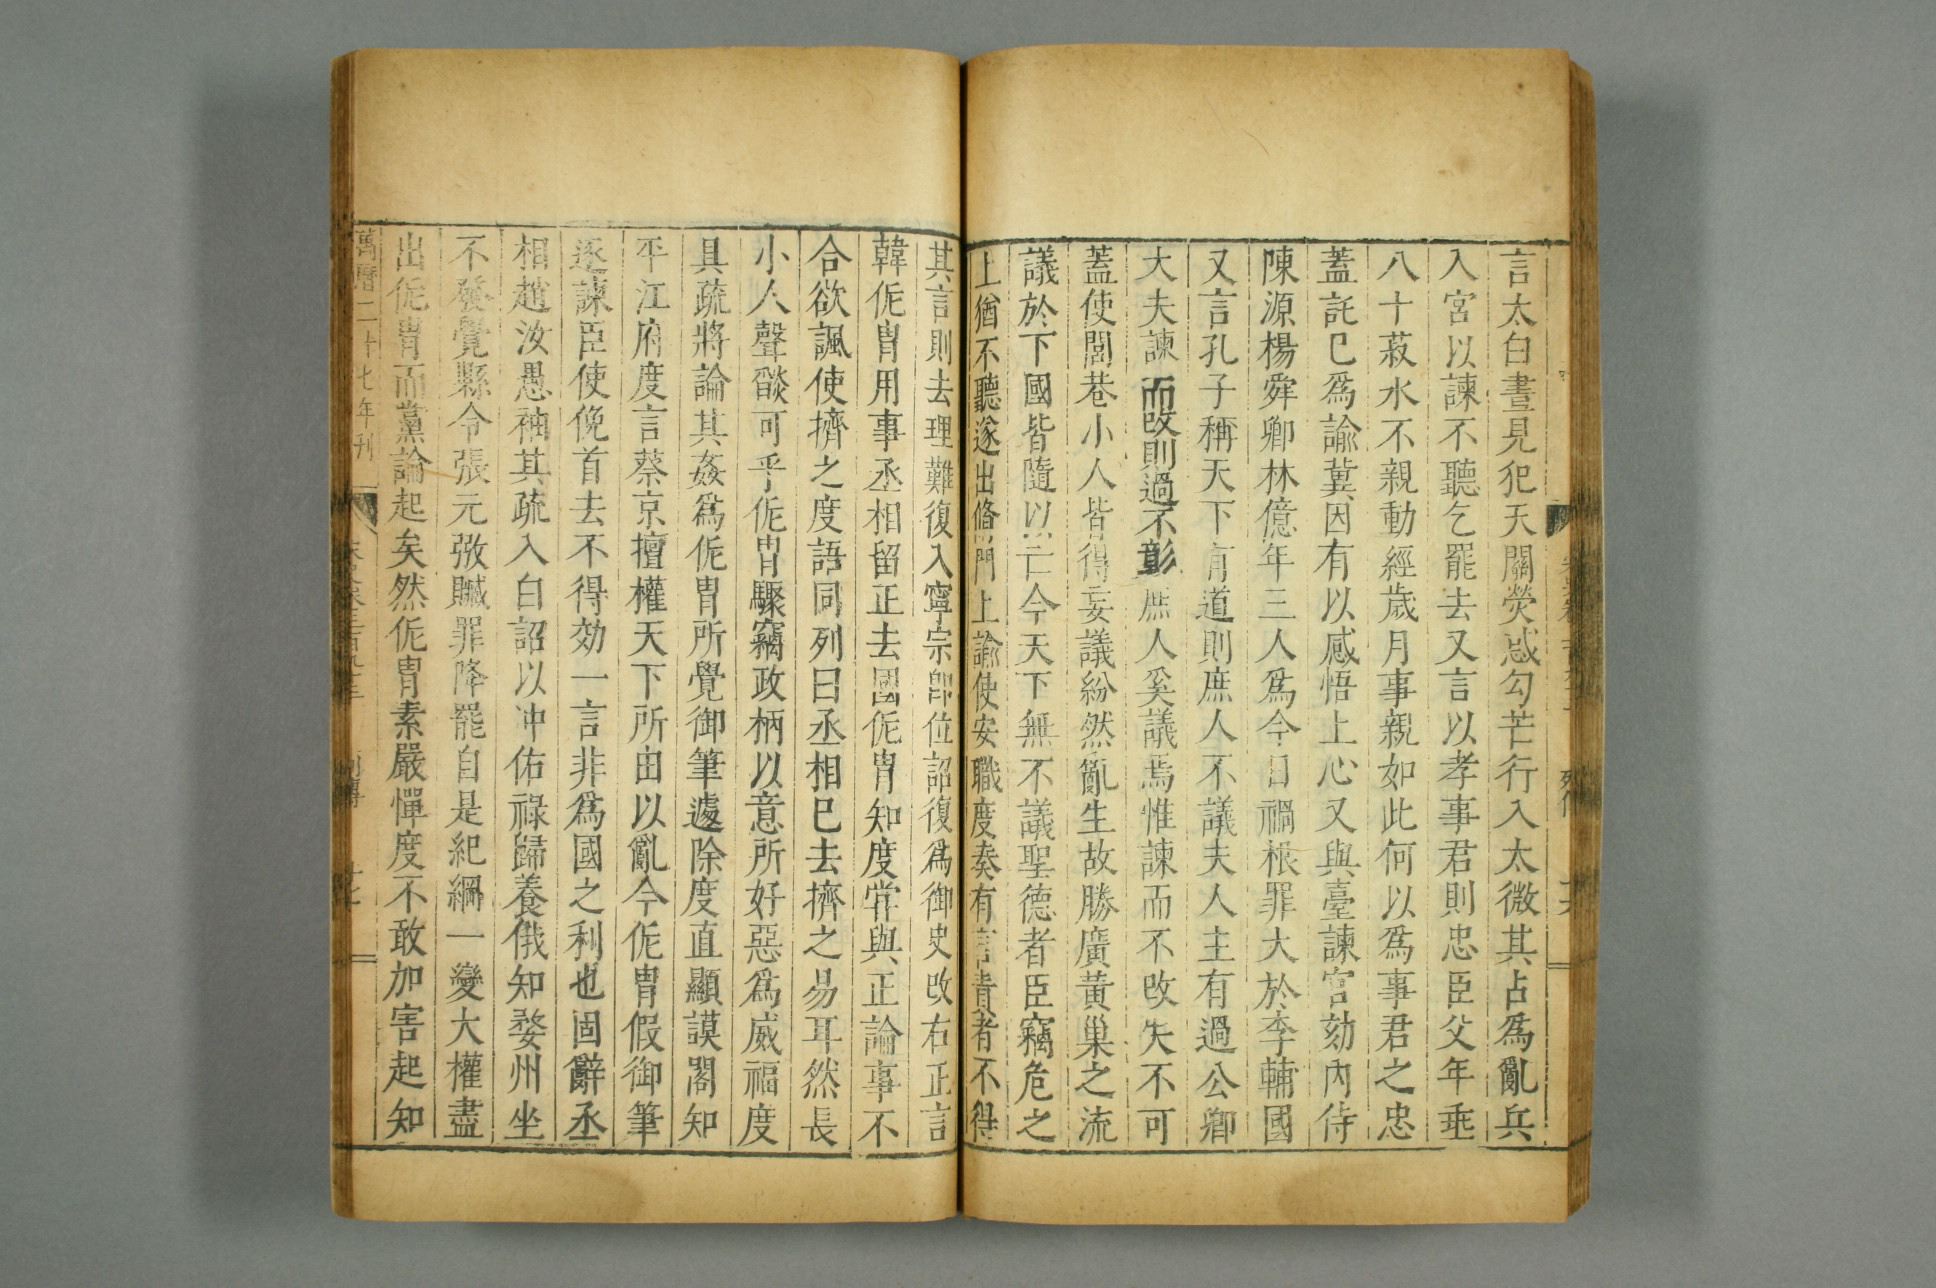 言太白晝見犯天關熒惑勾芒行入太微其占爲亂兵
入宮以諫不聽乞罷去又言以孝事君則忠臣父年垂
八十菽水不親動經歲月事親如此何以爲事君之忠
蓋託已爲諭冀因有以感悟上心又與臺諫官劾內侍
陳源楊舜卿林億年三人爲今日禍根罪大於李輔國
又言孔子稱天下有道則庶人不議夫人主有過公卿
大夫諫而改則過不彰庶人奚議焉惟諫而不改失不可
蓋使閭巷小人皆得妄議紛然亂生故勝廣黃巢之流
議於下國皆隨以亡今天下無不議聖德者臣竊危之
上猶不聽遂出脩門上諭使安職度奏有言責者不得
其言則去理難復入寧宗卽位詔復爲御史改右正言
韓侂冑用事丞相留正去國侂冑知度嘗與正論事不
合欲諷使擠之度語同列曰丞相已去擠之易耳然長
小人聲燄可乎侂冑驟竊政柄以意所好惡爲威福度
具疏將論其姦爲侂冑所覺御筆遽除度直顯謨閣知
平江府度言蔡京擅權天下所由以亂今侂冑假御筆
逐諫臣使俛首去不得効一言非爲國之利也固辭丞
相趙汝愚袖其疏入白詔以冲佑祿歸養俄知婺州坐
不發覺縣令張元弢贓罪降罷自是紀綱一變大權盡
出侂冑而黨論起矣然侂冑素嚴憚度不敢加害起知
萬曆二十七年刊